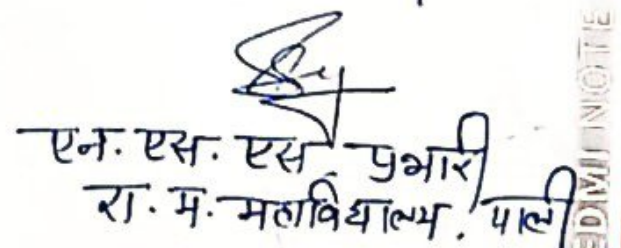 एन. एस. एस प्रभारी
रा. म. महाविद्यालय, पाली
EDMI NOTE